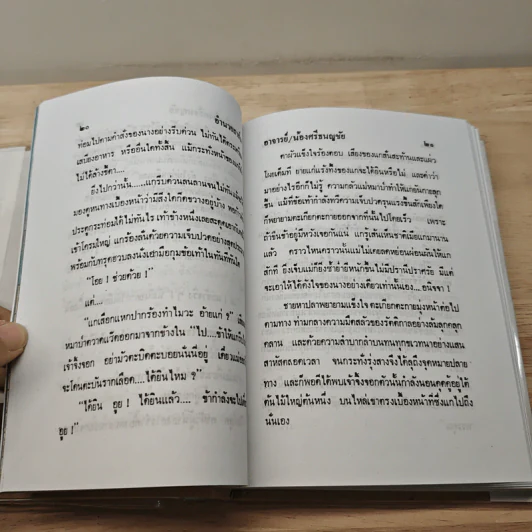 ๒๐
ท่อมไปตามคำสั่งของนางอย่างรีบด่วน ไม่ทันได้
เสบียงอาหาร หรืออื่นใดทั้งสิ้น แม้กระทั่งหน้าของ
ไม่ได้ล้างขี้ตา....
ยิ่งไปกว่านั้น.....แกรีบด่วนลนลานจนไม่ทัน
มองดูหนทางเบื้องหน้าว่ามีสิ่งใดกีดขวางอยู่บ้าง พอก้าว
ประตูกระท่อมได้ไม่ทันไร เท้าข้างหนึ่งเลยสะดุด
เข้าโครมใหญ่ แกร้องลั่นด้วยความเจ็บปวดอย่างสุด
พร้อมกับทรุดฮวบลงนั่งเอามือกุมข้อเท้าในทันทีทันใด
"โอย ! ช่วยด้วย !"
แต่....
"แกเสือกแหกปากร้องทำไมวะ อ้ายแก่ ?"
หมาบ้าตวาดแว๊ดออกมาจากข้างใน "ไป....
เจ้าจิ้งจอก อย่ามัวตะบิดตะบอยนั่นนี่อยู่ เดี๋ยวแม่
จะโดนตะบันรากเลือด....ได้ยินไหม ?"
"ได้ยิน อูย ! ได้ยินแล้ว.... ข้ากำลังจะไป
อูย !"
อาจารย์/น้องศรีธนญชัย
๒๑
ตาผัวแข็งใจร้องตอบ เสียงของแกสั่นสะท้านและแผ่ว
โผยเต็มที่ ยายแก่แร้งทึ้งของแกจะได้ยินหรือไม่ และด่าว่า
มาอย่างไรอีกก็ไม่รู้ ความกลัวแม่หมาบ้าทำให้แกยันกายลุก
ขึ้น แม้ที่ข้อเท้ากำลังทวีความเจ็บปวดรุนแรงขึ้นสักเพียงใด
ก็พยายามตะเกียกตะกายออกจากที่นั้นไปโดยเร็ว เพราะ
ถ้าขืนช้าอยู่มีหวังเจอกันแน่ แกรู้เส้นเห็นชาติเมียแกมานาน
แล้ว คราวไหนคราวนั้นแม่ไม่เคยลดหย่อนผ่อนผันให้แก
สักที ยิ่งเจ็บแม่ก็ยิ่งซ้ำย่ำยีหนุกขึ้นไม่มีปรานีปราศรัย มีแต่
จะเอาให้ได้ดังใจของนางอย่างเดียวเท่านั้นเอง....อนิจจา !
ชายหาปลาพยายามแข็งใจ ตะเกียกตะกายมุ่งหน้าต่อไป
ตามทาง ท่ามกลางความมืดสลัวของรัตติกาลอย่างล้มลุกคลุก
คลาน และด้วยความลำบากลำบนทนทุกขเวทนาอย่างแสน
สาหัสตลอดเวลา จนกระทั่งรุ่งสางจึงได้ลุถึงจุดหมายปลาย
ทาง และก็พอดีได้พบเจ้าจิ้งจอกตัวนั้นกำลังนอนคดคู้อยู่ใต้
ต้นไม้ใหญ่ต้นหนึ่ง บนไหล่เขาตรงเบื้องหน้าที่ซึ่งแกไปถึง
นั่นเอง